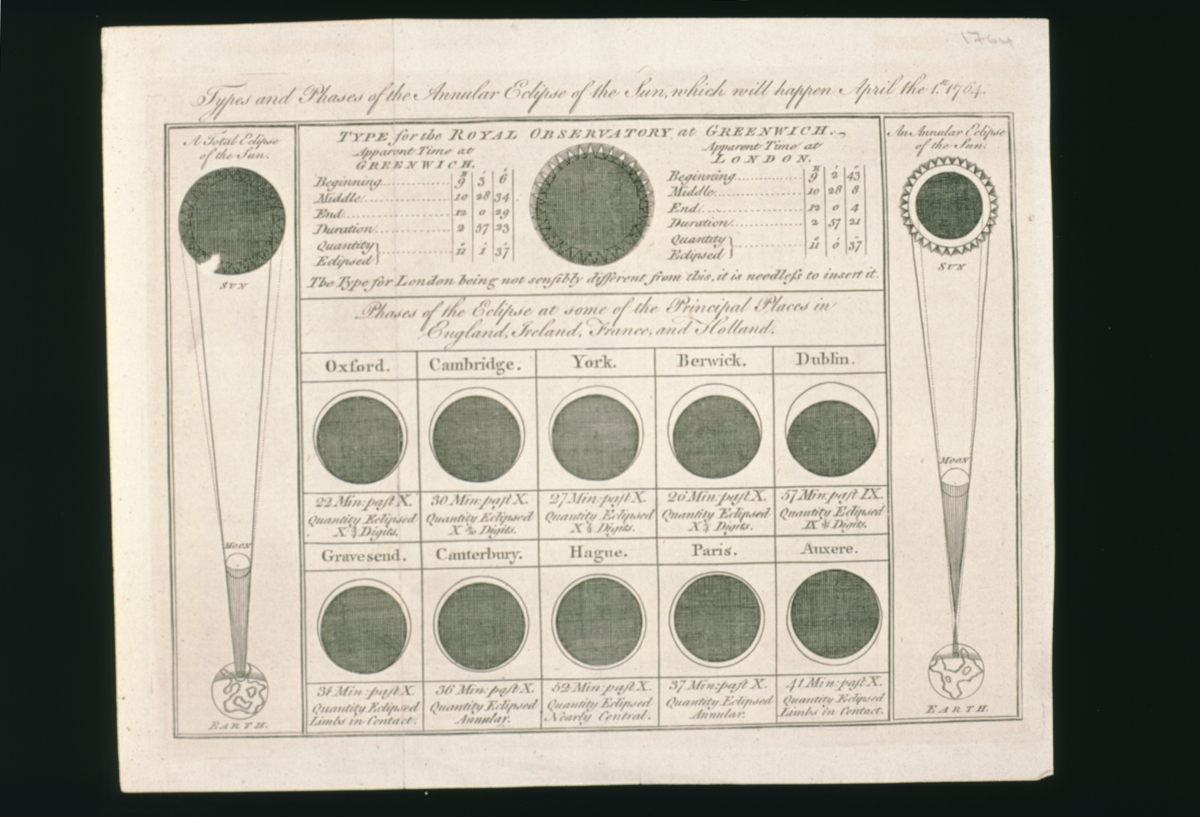 1764
Types and Phases of the Annular Eclipse of the Sun, which will happen April the 1.st 1764.
A Total Eclipse
of the Sun.
SUN
MOON
EARTH.
TYPE for the ROYAL OBSERVATORY at GREENWICH.
Apparent Time at
GREENWICH.
H ' "
Beginning 9 3 6
Middle 10 28 34
End 12 0 29
Duration 2 57 23
Quantity
Eclipsed 11 1 37
Apparent Time at
LONDON.
H ' "
Beginning 9 2 43
Middle 10 28 8
End 12 0 4
Duration 2 57 21
Quantity
Eclipsed 11 0 37
The Type for London being not sensibly different from this, it is needless to insert it.
Phases of the Eclipse at some of the Principal Places in
England, Ireland, France, and Holland.
Oxford.
22 Min: past X.
Quantity Eclipsed
X Digits.
Cambridge.
30 Min: past X.
Quantity Eclipsed
X Digits.
York.
27 Min: past X.
Quantity Eclipsed
X Digits.
Berwick.
26 Min: past X.
Quantity Eclipsed
X Digits.
Dublin.
57 Min: past IX.
Quantity Eclipsed
IX Digits.
Gravesend.
31 Min: past X.
Quantity Eclipsed
Limbs in Contact.
Canterbury.
36 Min: past X.
Quantity Eclipsed
Annular.
Hague.
52 Min: past X.
Quantity Eclipsed
Nearly Central.
Paris.
37 Min: past X.
Quantity Eclipsed
Annular.
Auxere.
41 Min: past X.
Quantity Eclipsed
Limbs in Contact.
An Annular Eclipse
of the Sun.
SUN
MOON
EARTH.